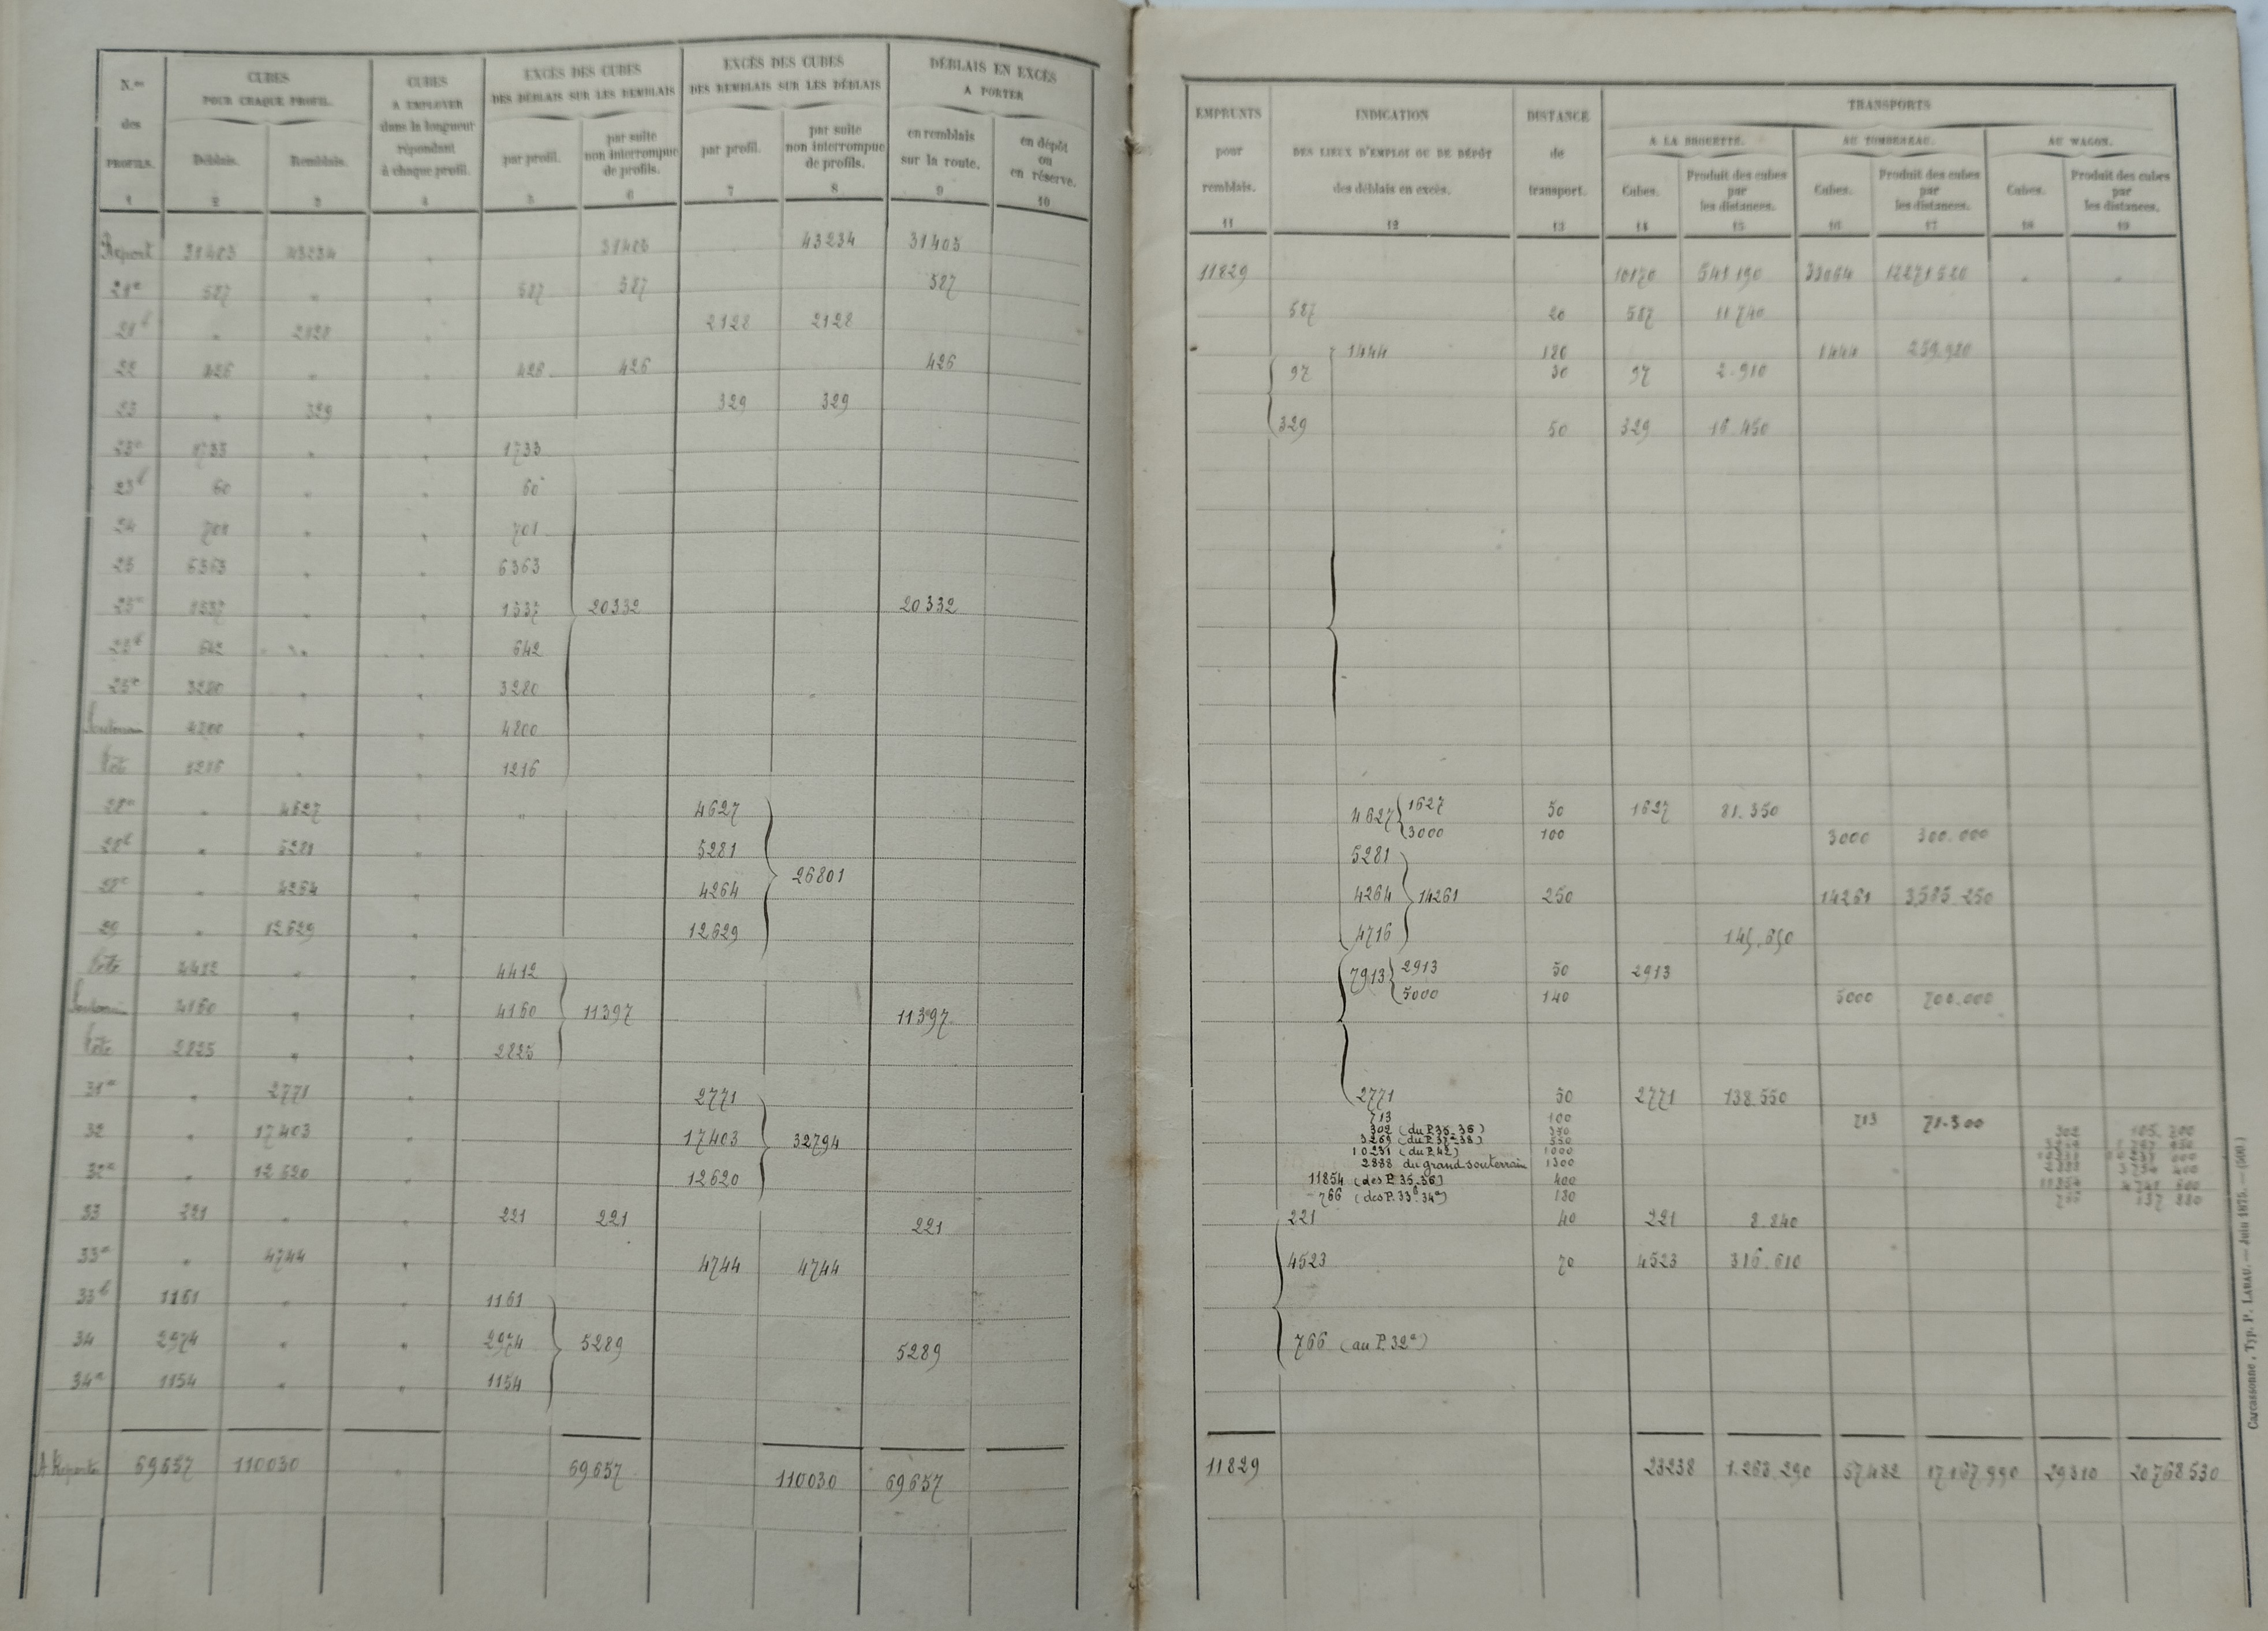 N.os des PROFILS.
CUBES POUR CHAQUE PROFIL.
Déblais. Remblais.
CUBES A EMPLOYER dans la longueur répondant à chaque profil.
EXCÈS DES CUBES DES DÉBLAIS SUR LES REMBLAIS
par profil. par suite non interrompue de profils.
EXCÈS DES CUBES DES REMBLAIS SUR LES DÉBLAIS
par profil. par suite non interrompue de profils.
DÉBLAIS EN EXCÈS A PORTER
en remblais sur la route. en dépôt ou en réserve.
1 2 3 4 5 6 7 8 9 10
Report 31403 43234 31403 43234 31403
21a 587 " " 587 587 587
21b " 2128 " 2128 2128
22 426 " " 426 426 426
23 " 329 " 329 329
23a 1733 " " 1733
23b 60 " " 60
24 701 " " 701
25 6363 " " 6363
25a 1537 " " 1537 20332 20332
25b 642 " " 642
25c 3280 " " 3280
Souterrain 4800 " " 4800
Tête 1216 " " 1216
28a " 4627 " " 4627
28b " 5281 " 5281
28c " 4264 " 4264 26801
29 " 12629 " 12629
Tête 4412 " " 4412
Souterrain 4160 " " 4160 11397 11397
Tête 2825 " " 2825
31a " 2771 " 2771
32 " 17403 " 17403 32794
32a " 12620 " 12620
33 221 " " 221 221 221
33a " 4744 " 4744 4744
33b 1161 " " 1161
34 2974 " " 2974 5289 5289
34a 1154 " " 1154
A Reporter 69657 110030 " 69657 110030 69657
EMPRUNTS pour remblais.
INDICATION DES LIEUX D'EMPLOI OU DE DÉPÔT des déblais en excès.
DISTANCE de transport.
TRANSPORTS
A LA BROUETTE. AU TOMBEREAU. AU WAGON.
Cubes. Produit des cubes par les distances. Cubes. Produit des cubes par les distances. Cubes. Produit des cubes par les distances.
11 12 13 14 15 16 17 18 19
11829 10170 541190 33064 12271520 " "
587 20 587 11740
1444 180 1444 259.920
97 30 97 2.910
329 50 329 16.450
4627 1627 50 1627 81.350
3000 100 3000 300.000
5281
4264 14261 250 14261 3,565.250
4716 145,650
7913 2913 50 2913
5000 140 5000 700.000
2771 50 2771 138.550
713 100 713 71.300
302 (du P. 35-36)
3269 (du P. 37a-38) 550
10231 (du P. 42) 1000
2888 du grand souterrain 1300
11854 (des P. 35-36) 400
766 (des P. 33b-34a) 180
221 40 221 8.840
4523 70 4523 316.610
766 (au P. 32a)
11829 23238 1.263.290 57482 17167,990 29310 20,768.530
Carcassonne, Typ. P. LABAU. — Juin 1875. — (500.)